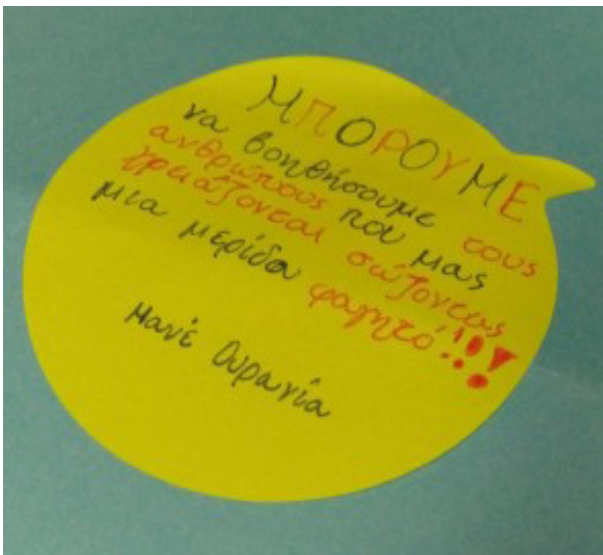 ΜΠΟΡΟΥΜΕ
να βοηθήσουμε τους
ανθρώπους που μας
χρειάζονται σώζοντας
μια μερίδα φαγητό!!!
Μανέ Ουρανία